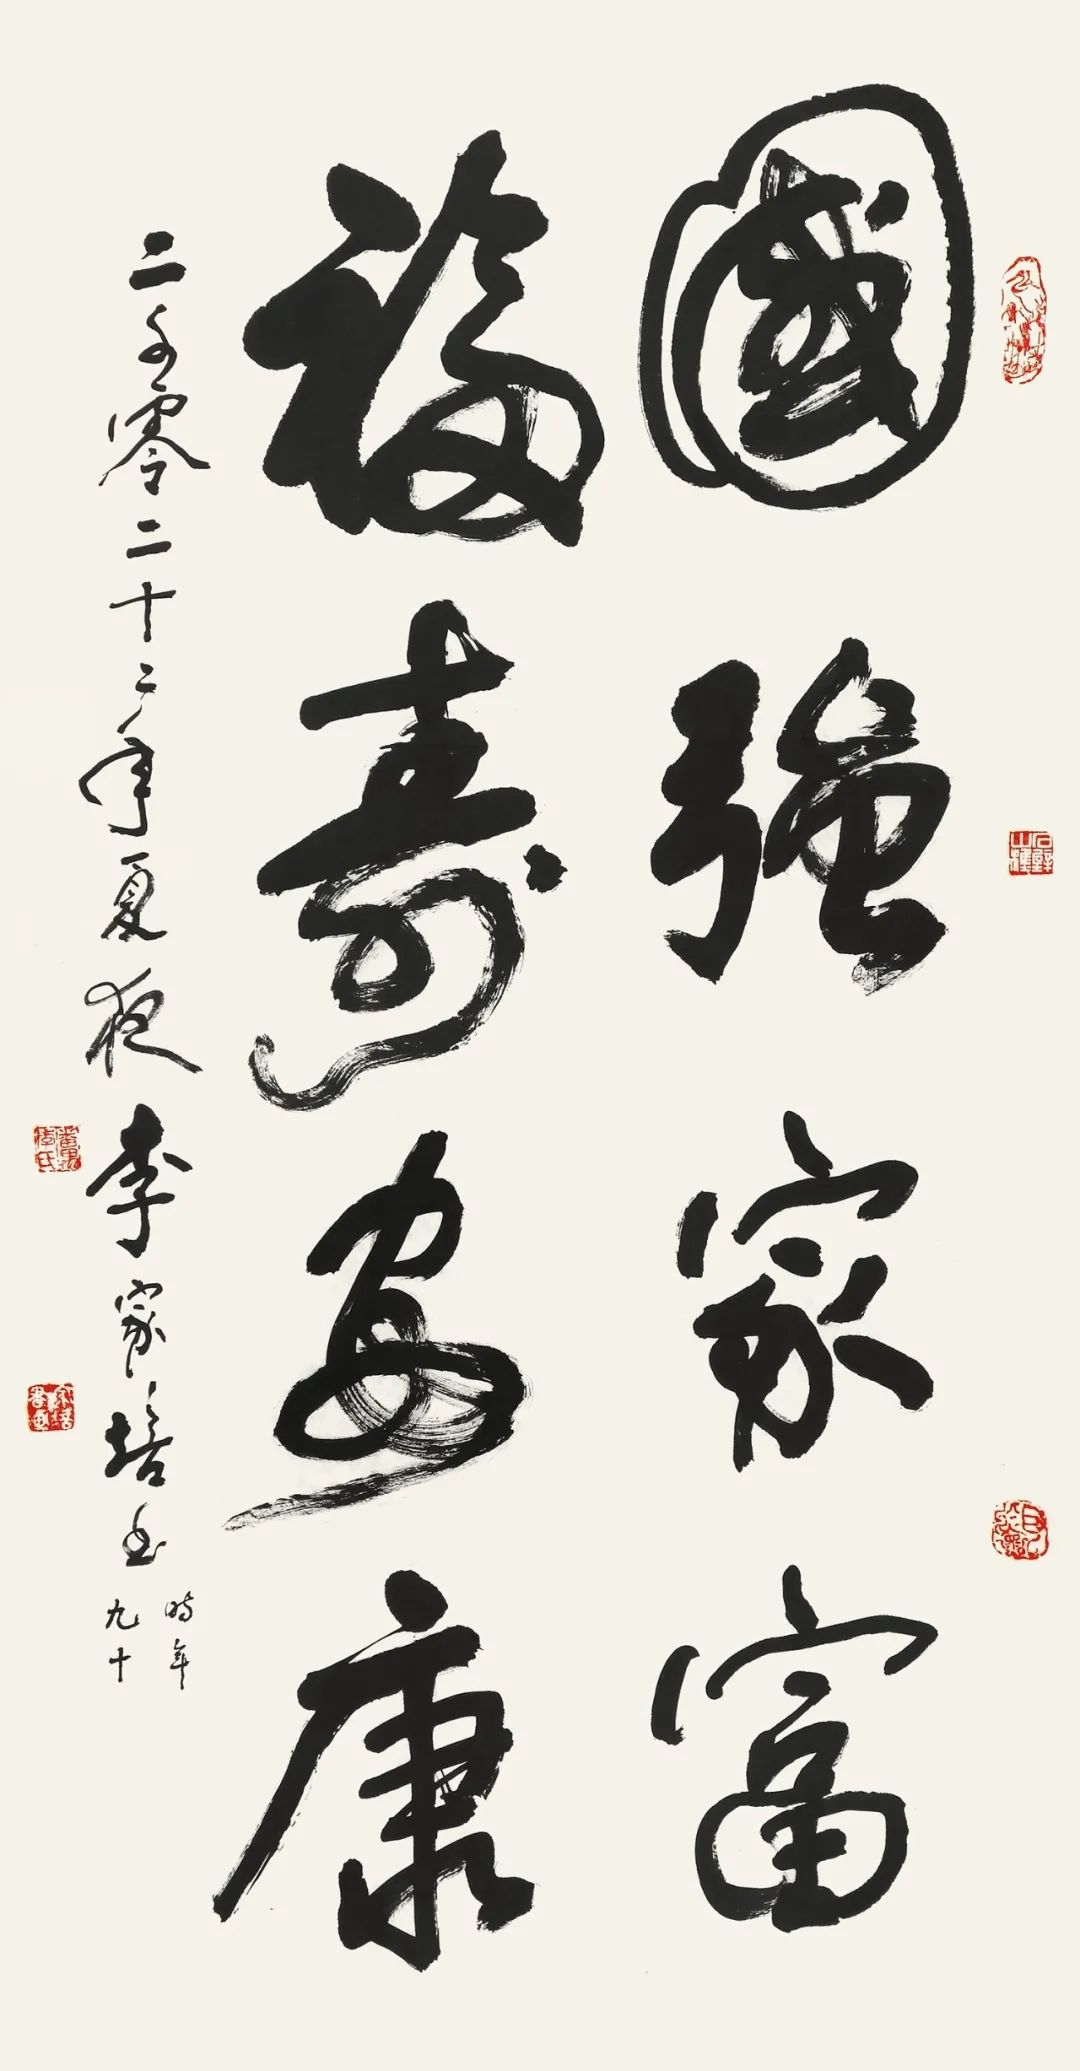 國強家富
福壽安康
二千零二十二年夏夜李家培书
時年
九十